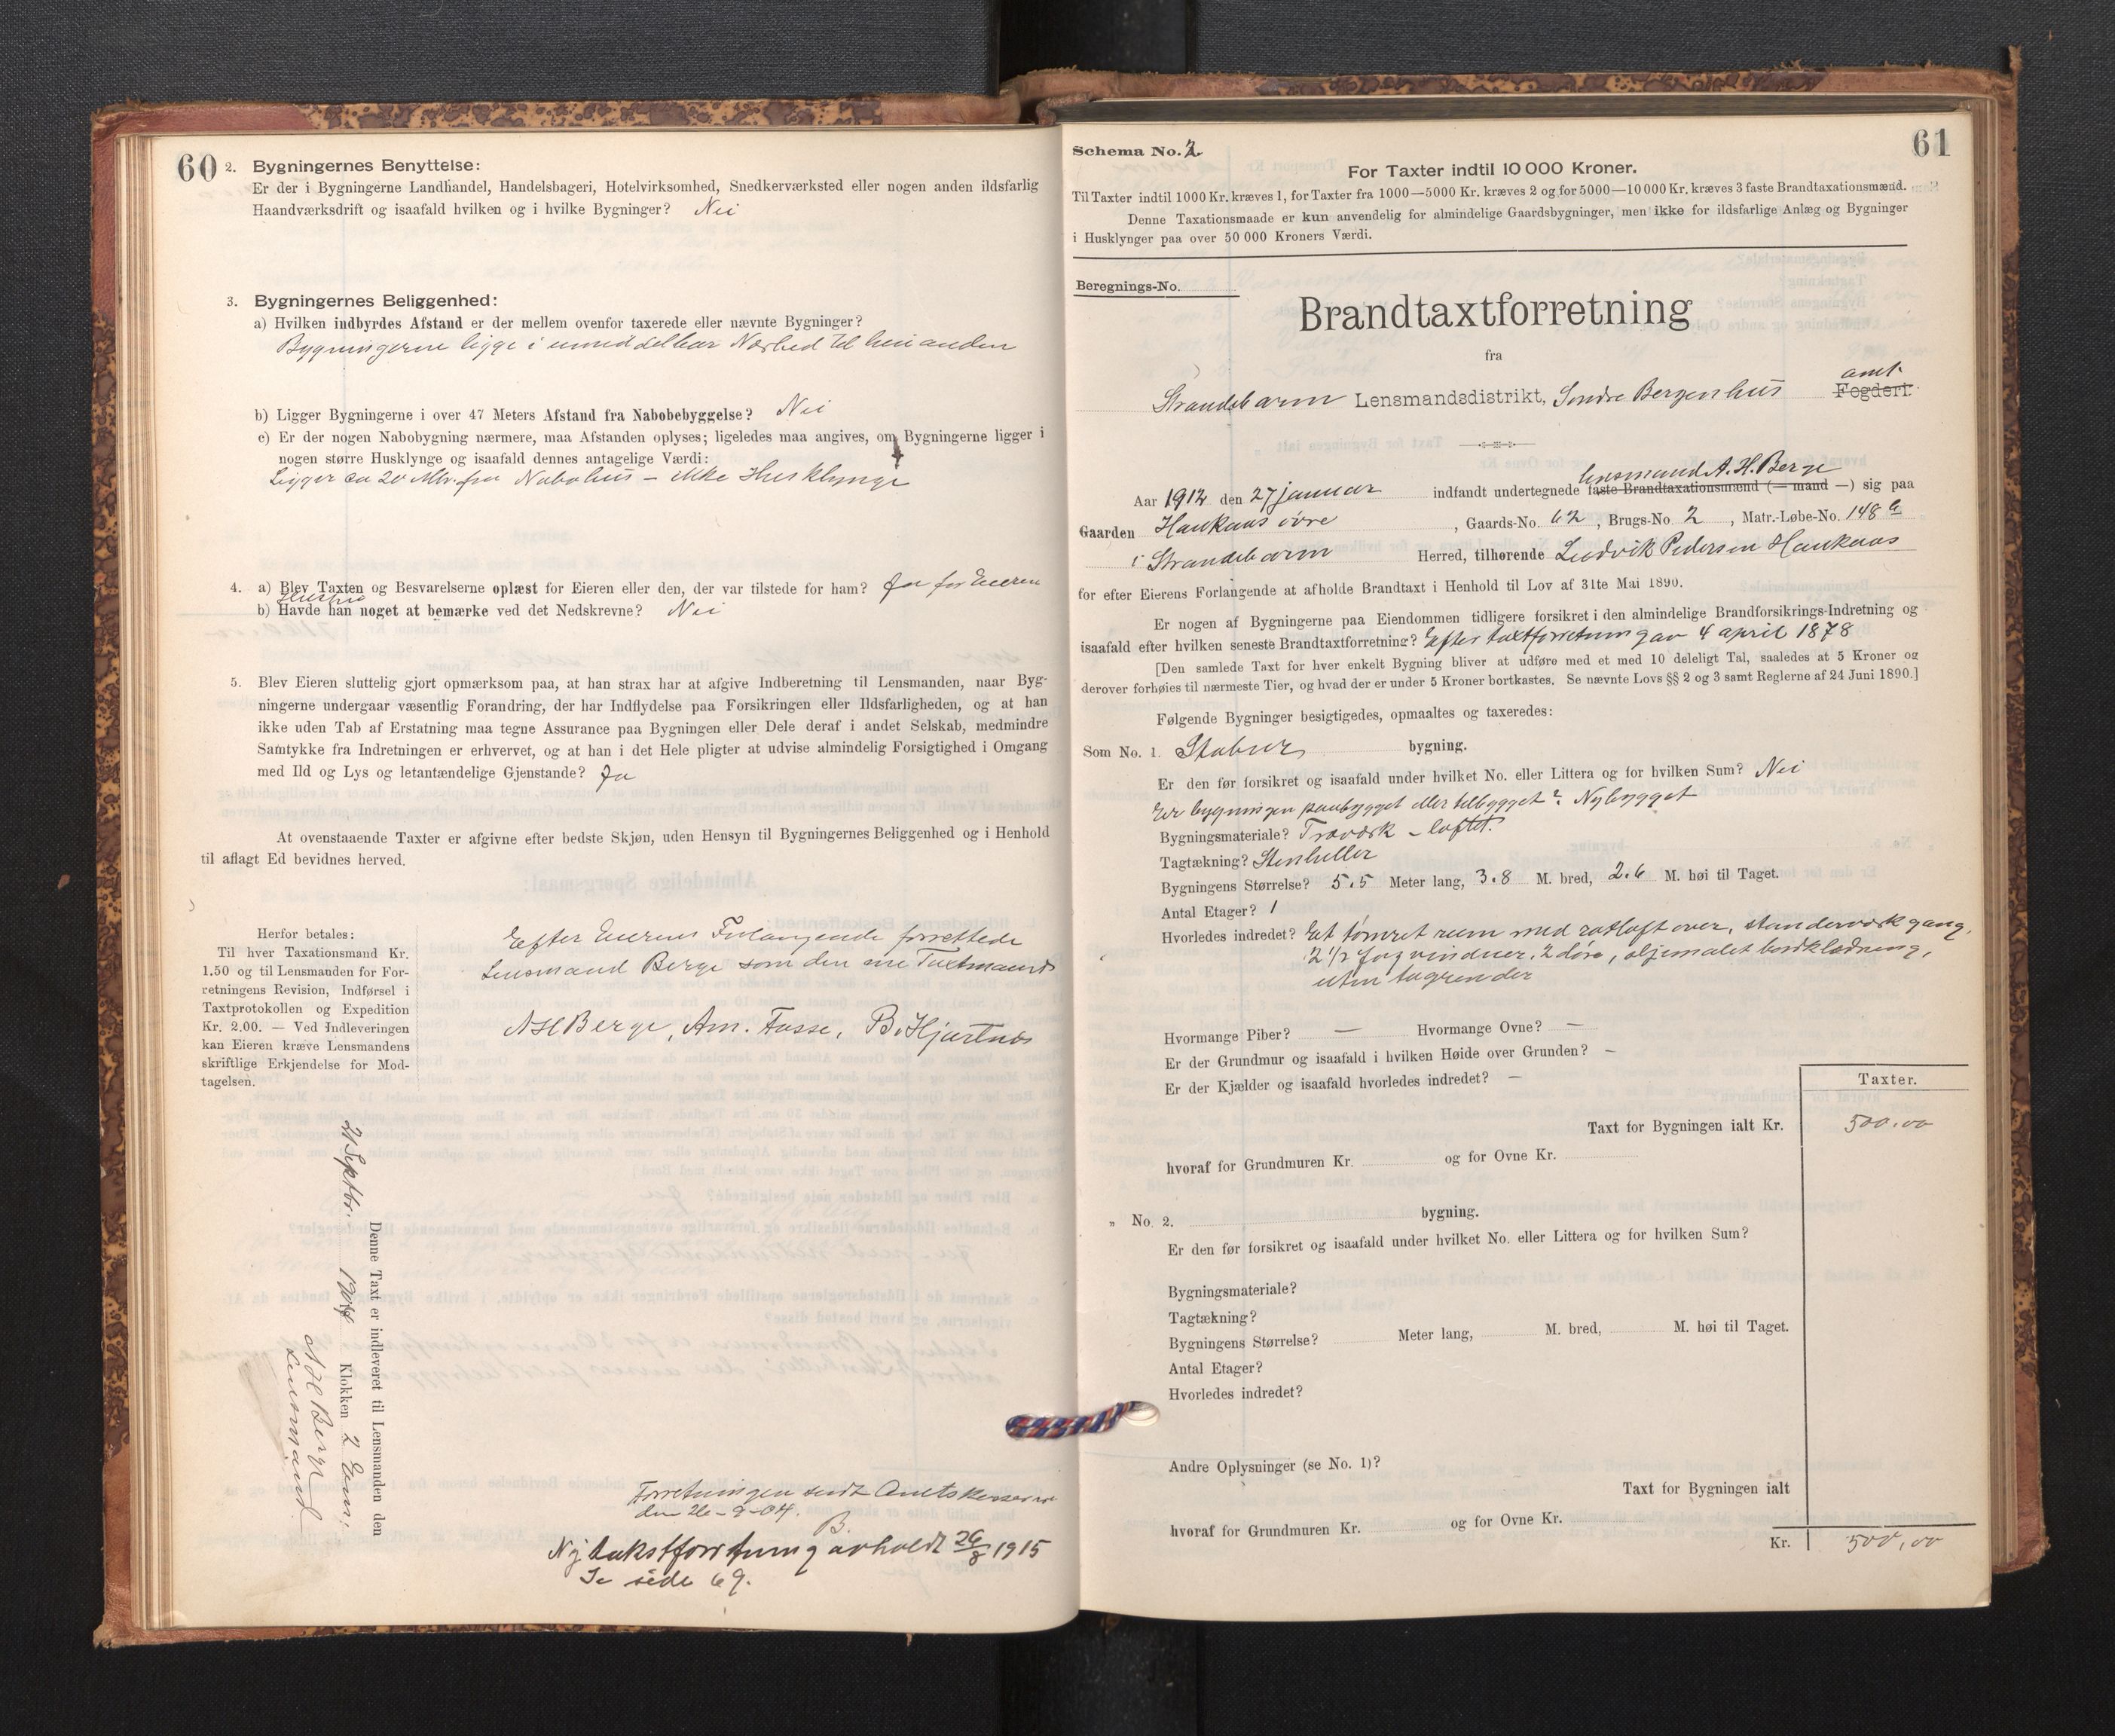 60
2. Bygningernes Benyttelse:
Er der i Bygningerne Landhandel, Handelsbageri, Hotelvirksomhed, Snedkerværksted eller nogen anden ildsfarlig
Haandværksdrift og isaafald hvilken og i hvilke Bygninger? Nei
3. Bygningernes Beliggenhed:
a) Hvilken indbyrdes Afstand er der mellem ovenfor taxerede eller nævnte Bygninger?
Bygningerne ligge i umiddelbar Nærhed til hinanden
b) Ligger Bygningerne i over 47 Meters Afstand fra Nabobebyggelse? Nei
c) Er der nogen Nabobygning nærmere, maa Afstanden oplyses; ligeledes maa angives, om Bygningerne ligger i
nogen større Husklynge og isaafald dennes antagelige Værdi:
Ligger ca 20 Mtr. fra Nabohus – ikke Husklynge
4. a) Blev Taxten og Besvarelserne oplæst for Eieren eller den, der var tilstede for ham? Ja for Eieren
b) Havde han noget at bemærke ved det Nedskrevne? Nei
5. Blev Eieren sluttelig gjort opmærksom paa, at han strax har at afgive Indberetning til Lensmanden, naar Byg-
ningerne undergaar væsentlig Forandring, der har Indflydelse paa Forsikringen eller Ildsfarligheden, og at han
ikke uden Tab af Erstatning maa tegne Assurance paa Bygningen eller Dele deraf i andet Selskab, medmindre
Samtykke fra Indretningen er erhvervet, og at han i det Hele pligter at udvise almindelig Forsigtighed i Omgang
med Ild og Lys og letantændelige Gjenstande? Ja
At ovenstaaende Taxter er afgivne efter bedste Skjøn, uden Hensyn til Bygningernes Beliggenhed og i Henhold
til aflagt Ed bevidnes herved.
Herfor betales:
Til hver Taxationsmand Kr.
1.50 og til Lensmanden for For-
retningens Revision, Indførsel i
Taxtprotokollen og Expedition
Kr. 2.00. — Ved Indleveringen
kan Eieren kræve Lensmandens
skriftlige Erkjendelse for Mod-
tagelsen.
Efter Eierens Forlangende forrettede
Lensmand Berge som den ene Taxtmand
AHBerge, Am. Fosse, B. Hjartnæs
Denne Taxt er indleveret til Lensmanden den
21 Septbr. 1904 Klokken 2 Em.
AHBerge
Lensmand
Forretningen sendt Amtskasserer
den 26-9-04.
B.
Ny takstforretning avholdt 26/8 1915
Se side 69.
61
Schema No. 2
For Taxter indtil 10 000 Kroner.
Til Taxter indtil 1000 Kr. kræves 1, for Taxter fra 1000—5000 Kr. kræves 2 og for 5000—10 000 Kr. kræves 3 faste Brandtaxationsmænd.
Denne Taxationsmaade er kun anvendelig for almindelige Gaardsbygninger, men ikke for ildsfarlige Anlæg og Bygninger
i Husklynger paa over 50 000 Kroners Værdi.
Beregnings-No.
Brandtaxtforretning
fra
amt
Strandebarm Lensmandsdistrikt, Søndre Bergenhus Fogderi.
lensmand A. H. Berge
Aar 1912 den 27 januar indfandt undertegnede faste Brandtaxationsmænd (— mand —) sig paa
Gaarden Haukaas øvre, Gaards-No. 62, Brugs-No. 2, Matr.-Løbe-No. 148 a
i Strandebarm Herred, tilhørende Ludvik Pedersen Haukaas
for efter Eierens Forlangende at afholde Brandtaxt i Henhold til Lov af 31te Mai 1890.
Er nogen af Bygningerne paa Eiendommen tidligere forsikret i den almindelige Brandforsikrings-Indretning og
isaafald efter hvilken seneste Brandtaxtforretning? Efter taxtforretning av 4 april 1878
[Den samlede Taxt for hver enkelt Bygning bliver at udføre med et med 10 deleligt Tal, saaledes at 5 Kroner og
derover forhøies til nærmeste Tier, og hvad der er under 5 Kroner bortkastes. Se nævnte Lovs §§ 2 og 3 samt Reglerne af 24 Juni 1890.]
Følgende Bygninger besigtigedes, opmaaltes og taxeredes:
Som No. 1. Stabur bygning.
Er den før forsikret og isaafald under hvilket No. eller Littera og for hvilken Sum? Nei
Er bygningen paabygget eller tilbygget? Nybygget
Bygningsmateriale? Træværk – loftet.
Tagtækning? Stenheller
Bygningens Størrelse? 5.5 Meter lang, 3.8 M. bred, 2.6 M. høi til Taget.
Antal Etager? 1
Hvorledes indredet? Et tømret rum med rotloft over, standerværk gang,
2 1/2 fag vinduer, 2 døre, oljemalet bordklædning,
uten tagrender
Hvormange Piber? — Hvormange Ovne? —
Er der Grundmur og isaafald i hvilken Høide over Grunden? –
Er der Kjælder og isaafald hvorledes indredet? —
Taxter.
Taxt for Bygningen ialt Kr. 500,00
hvoraf for Grundmuren Kr. og for Ovne Kr.
„ No. 2. bygning.
Er den før forsikret og isaafald under hvilket No. eller Littera og for hvilken Sum?
Bygningsmateriale?
Tagtækning?
Bygningens Størrelse? Meter lang, M. bred, M. høi til Taget.
Antal Etager?
Hvorledes indredet?
Andre Oplysninger (se No. 1)?
Taxt for Bygningen ialt
hvoraf for Grundmuren Kr. og for Ovne Kr.
Kr. 500,00